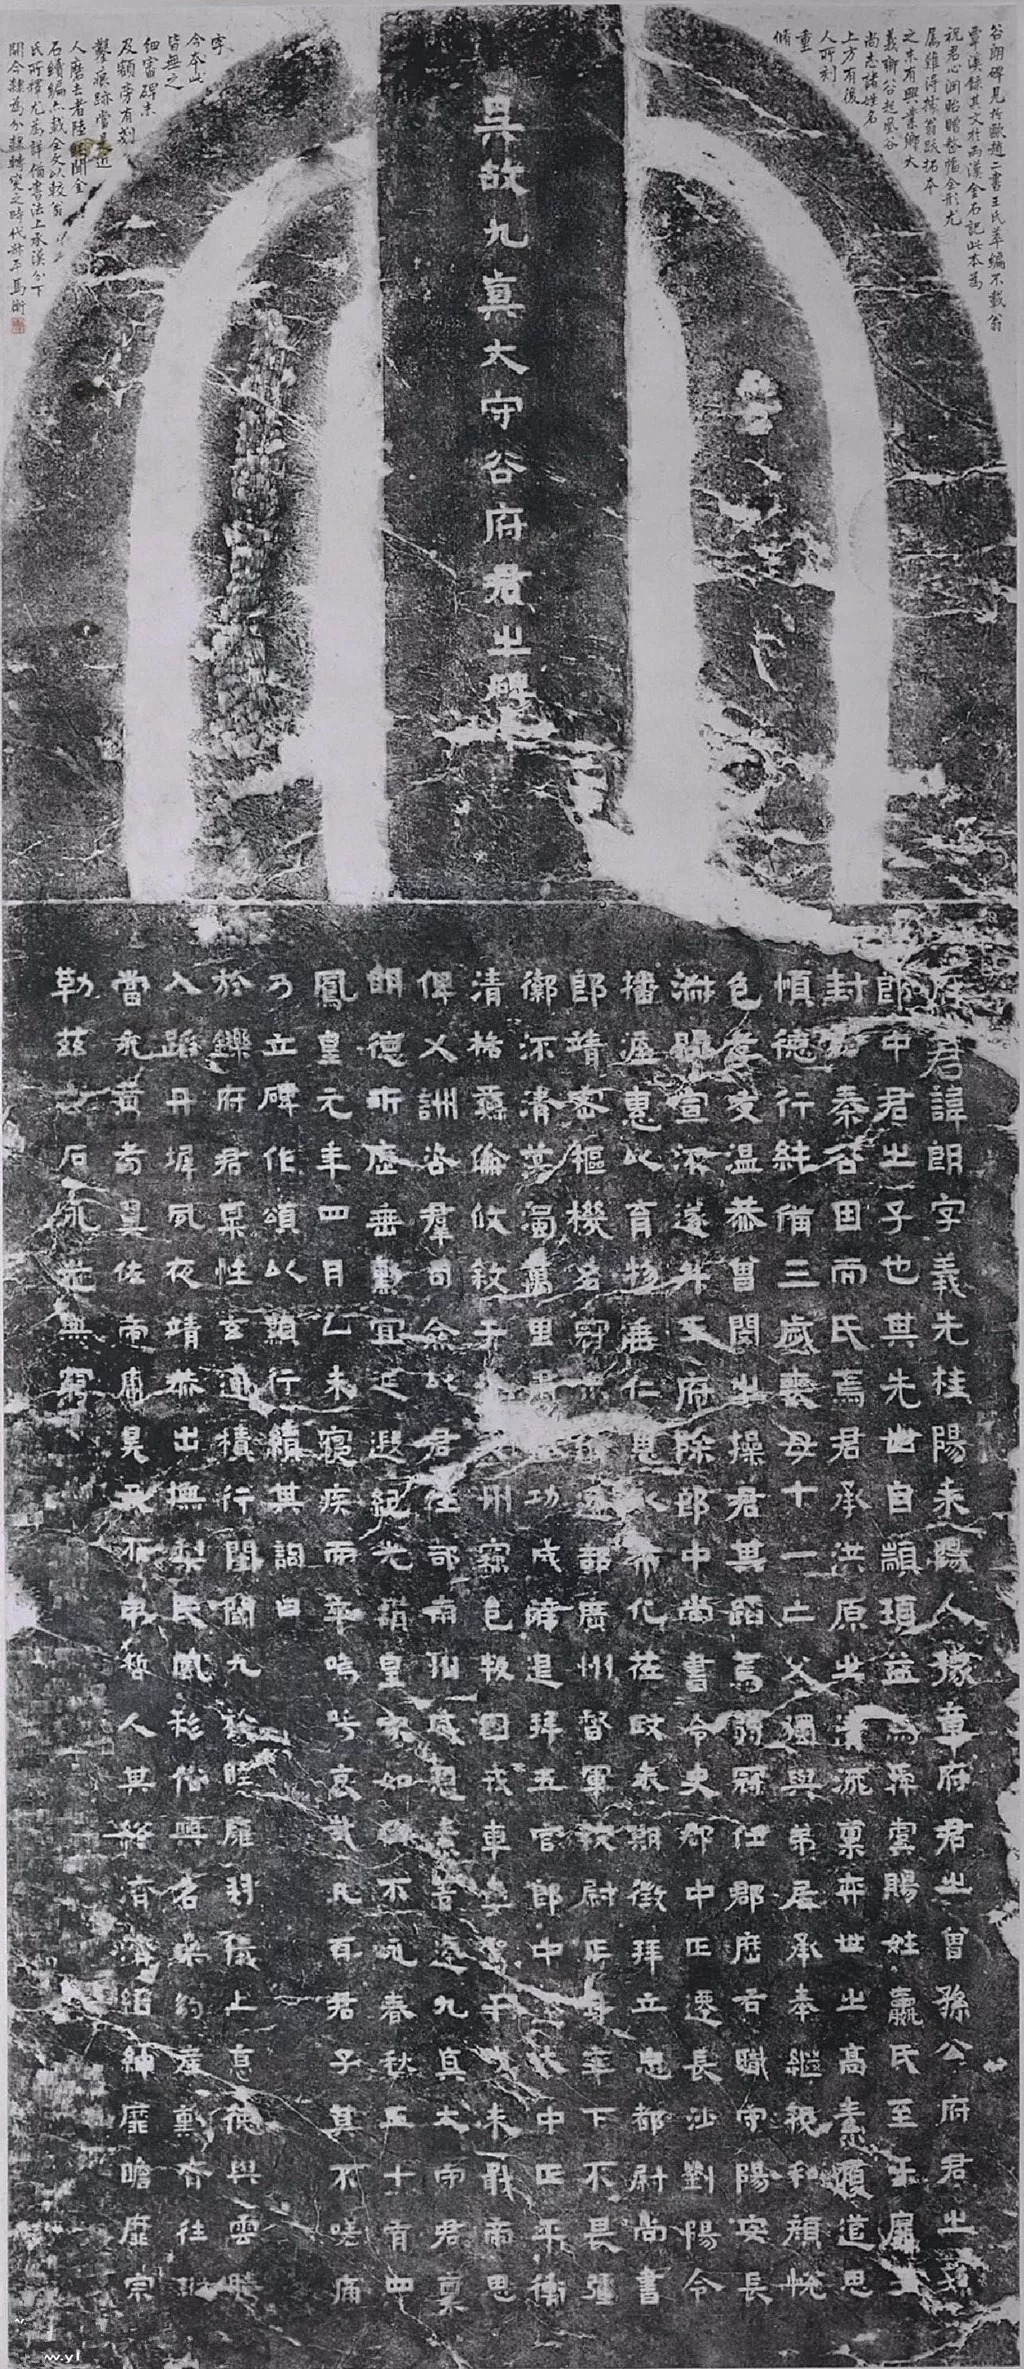 吳故九真大守谷府君之碑
谷朗碑見於歐趙二書王氏萃編不載翁
覃溪錄其文於兩漢金石記此本為
祝君心淵貽贈整幅全形尤
屬難得據翁跋拓本
之末有興業鄉大
義鄉谷起鳳谷
尚志諸姓名
上方有後
人所刻
重
脩
字
今本此
皆無之
細審碑末
及額旁有刻
鑿痕跡當是近
人磨去者陸聞金
石續編亦載全文以較翁
氏所釋尤為詳備書法上承漢分下
開今隸為分隸轉變之時代馬衡
府君諱朗字義先桂陽耒陽人豫章府君之曾孫公府君之孫
郎中君之子也其先世自顓頊益為帝虞賜姓嬴氏至于
封秦谷因而氏焉君承洪原之清流稟弈世之高素履道思
順德行純備三歲喪母十一亡父獨與弟居承奉繼親和顏悅
色孝友温恭曾閔之操君其蹈焉弱冠仕郡歷右職守陽安長
淵聞宣流遂升王府除郎中尚書令史郡中正遷長沙劉陽令
播渥惠以育物垂仁恩以布化莅政未期徵拜立忠都尉尚書
郎靖密樞機名冠遷部廣州督軍校尉正身率下不畏彊
禦流清蕩濁萬里肅功成辭退拜五官郎中大中正平衡
清格彝倫攸敘于交州竊邑叛國戎車干戈未戢帝思
俾乂詶咨羣司僉以君往部南州威恩素著遷九真太守君稟
明德所歷垂勳宜延遐紀光輔皇家如何不永春秋五十有四
鳳皇元年四月乙未寢疾而卒嗚呼哀哉凡百君子莫不嗟痛
乃立碑作頌以顯行績其詞曰
於鑠府君稟性玄通積行閨闈九族睦雍羽儀上京德與雲騰
入踰丹墀夙夜靖恭出撫黎民風移俗興名豹産勳齊往
當永黄耇翼佐帝庸昊天不弔哲人其終濟濟縉紳靡瞻靡宗
勒茲玄石永光無窮